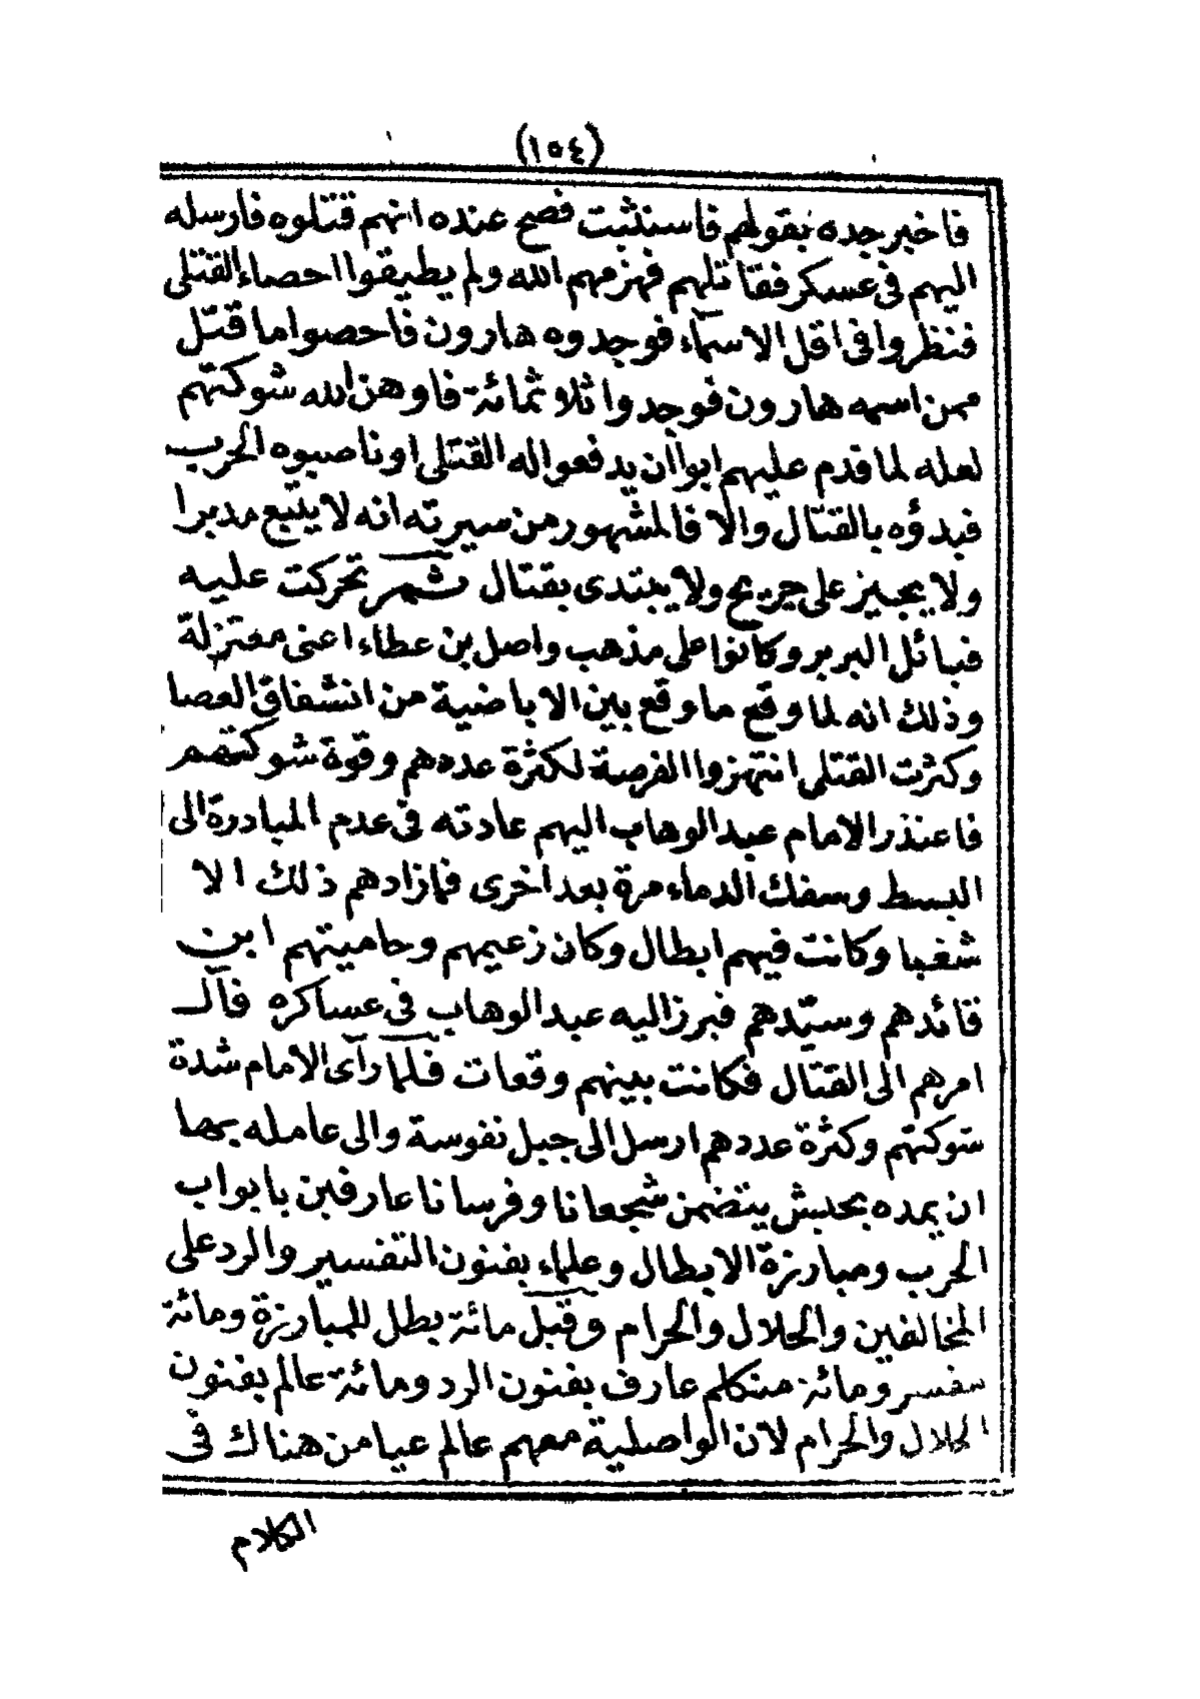 (١٥٤)
فاخبر جده بقولهم فاستثبت فصح عنده انهم قتلوه فارسله
اليهم فى عسكر فقاتلهم فهزمهم الله ولم يطيقوا احصاء القتلى
فنظروا فى اقل الاسماء فوجدوه هارون فاحصوا ما قتل
ممن اسمه هارون فوجدوا ثلاثمائة فاوهن الله شوكتهم
لعله لما قدم عليهم ابوا أن يدفعوا له القتلى او ناصبوه الحرب
فبدؤه بالقتال والا فالمشهور من سيرته انه لا يتبع مدبرا
ولا يجيز على جريح ولا يبتدى بقتال ثم تحركت عليه
قبائل البربر وكانوا على مذهب واصل بن عطاء اعنى معتزلة
وذلك انه لما وقع ما وقع بين الاباضية من انشقاق العصا
وكثرت القتلى انتهزوا الفرصة لكثرة عددهم وقوة شوكتهم
فاعتذر الامام عبد الوهاب اليهم عادته فى عدم المبادرة الى
البسط وسفك الدماء مرة بعد اخرى فما زادهم ذلك الا
شغبا وكانت فيهم ابطال وكان زعيمهم وحاميتهم ابن
قائدهم وسيّدهم فبرز اليه عبد الوهاب فى عساكره فآل
امرهم الى القتال فكانت بينهم وقعات فلما رآى الامام شدة
شوكتهم وكثرة عددهم ارسل الى جبل نفوسة والى عامله بها
ان يمده بجيش يتضمن شجعانا وفرسانا عارفين بابواب
الحرب ومبارزة الابطال وعلماء بفنون التفسير والرد على
المخالفين والحلال والحرام وقيل مائة بطل للمبارزة ومائة
مفسر ومائة متكلم عارف بفنون الرد ومائة عالم بفنون
الحلال والحرام لان الواصلية معهم عالم عيا من هناك فى
الكلام